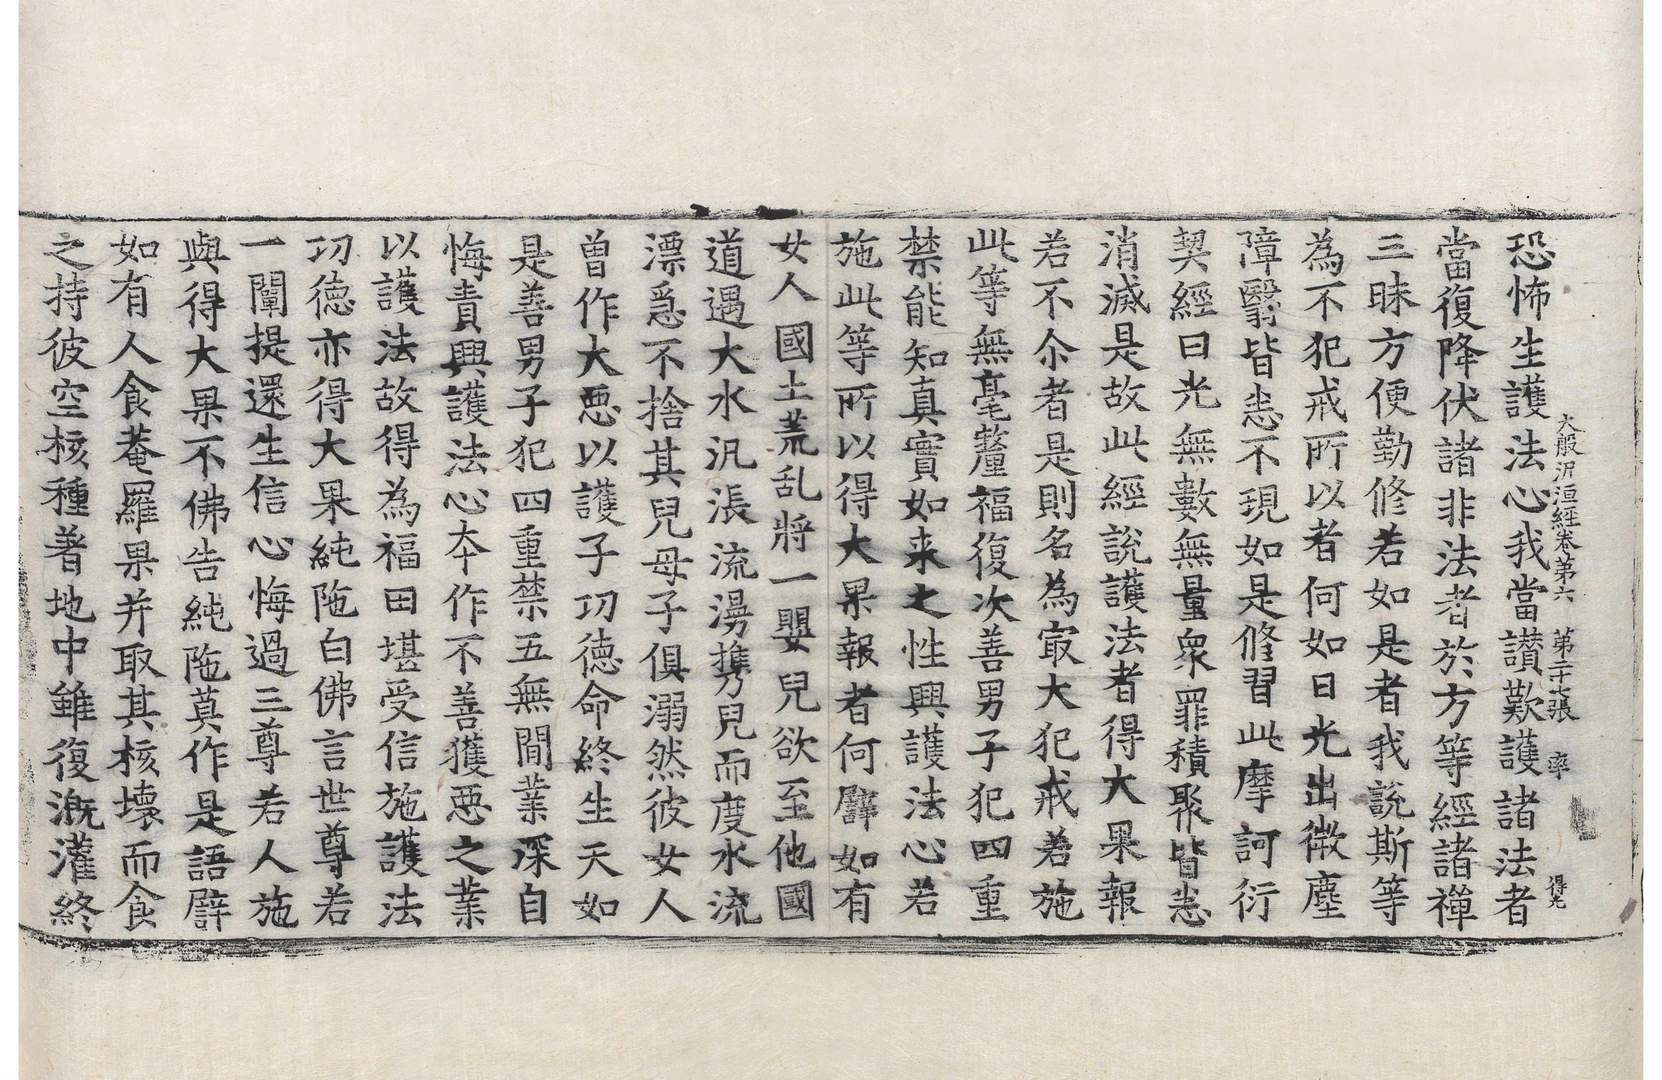 大般泥洹經卷第六 第二十七張 率 得光
恐怖生護法心我當讃歎護諸法者
當復降伏諸非法者於方等經諸禪
三昧方便勤修若如是者我說斯等
為不犯戒所以者何如日光出微塵
障翳皆悉不現如是修習此摩訶衍
契經日光無數無量衆罪積聚皆悉
消滅是故此經說護法者得大果報
若不尒者是則名為㝡大犯戒若施
此等無毫釐福復次善男子犯四重
禁能知真實如来之性興護法心若
施此等所以得大果報者何譬如有
女人國土荒乱將一嬰兒欲至他國
道遇大水汎漲流澇擕兒而度水流
漂急不捨其兒母子俱溺然彼女人
曾作大悪以護子功德命終生天如
是善男子犯四重禁五無間業深自
悔責興護法心夲作不善獲悪之業
以護法故得為福田堪受信施護法
功德亦得大果純陁白佛言世尊若
一闡提還生信心悔過三尊若人施
與得大果不佛告純陁莫作是語譬
如有人食菴羅果并取其核壞而食
之持彼空核種著地中雖復溉灌終